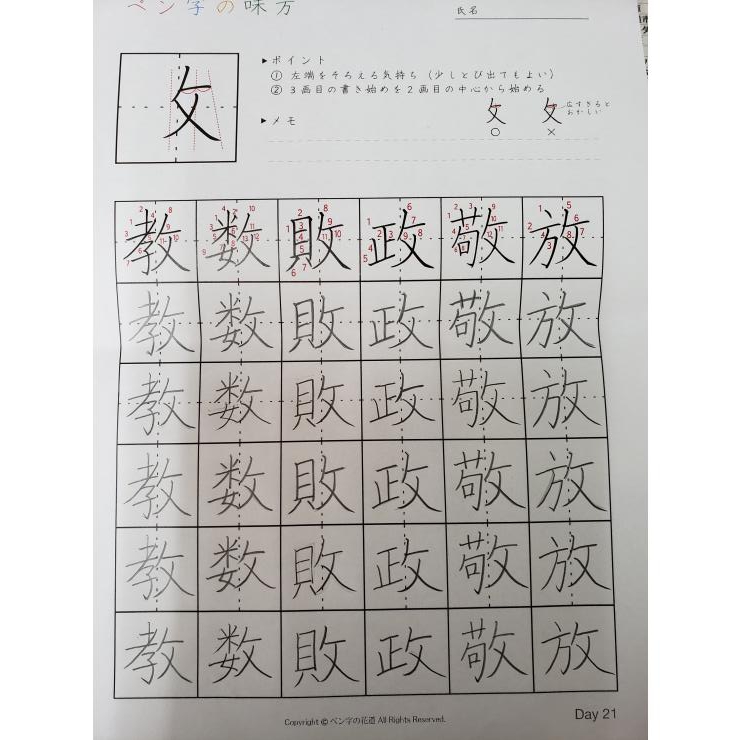 ペン字の味方
氏名
攵
▶ポイント
① 左端をそろえる気持ち（少しとび出てもよい）
② 3画目の書き始めを2画目の中心から始める
▶メモ
攵 攵 広すぎると
おかしい
○ ×
教 数 敗 政 敬 放
教 数 敗 政 敬 放
教 数 敗 政 敬 放
教 数 敗 政 敬 放
教 数 敗 政 敬 放
教 数 敗 政 敬 放
Copyright © ペン字の花道 All Rights Reserved.
Day 21